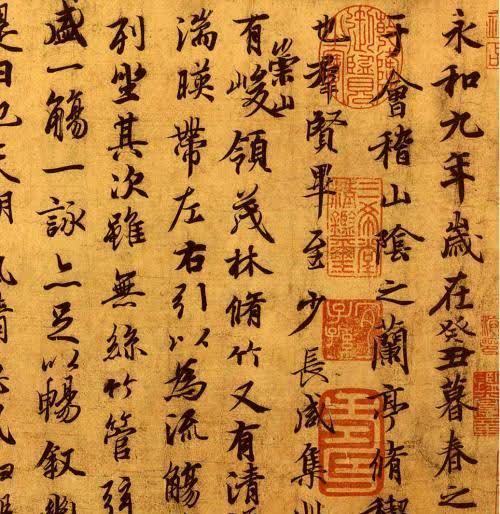 永和九年歲在癸丑暮春之
于會稽山陰之蘭亭脩禊
也羣賢畢至少長咸集此
有崇山峻領茂林脩竹又有清
湍暎帶左右引以為流觴
列坐其次雖無絲竹管弦
盛一觴一詠亦足以暢敘幽
是日也天朗氣清
三希堂精鑑璽
宜子孫